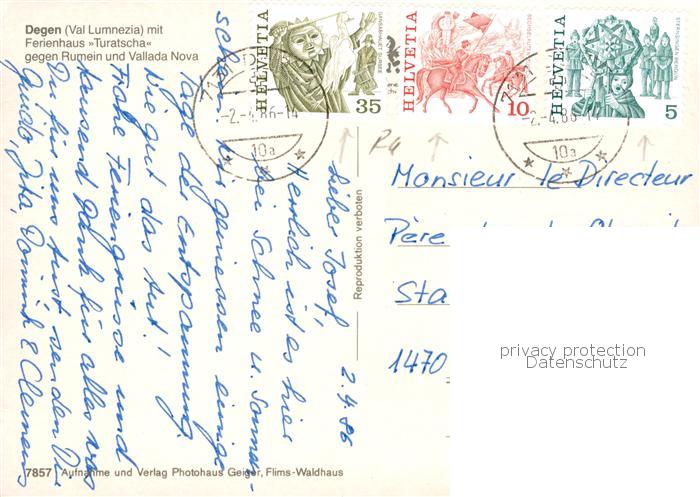 Degen (Val Lumnezia) mit
Ferienhaus »Turatscha«
gegen Rumein und Vallada Nova
HELVETIA
35
HELVETIA
10
HELVETIA
5
-2.-4.86-14
10a
-2.-4.86-14
10a
R4
2.4.86
Lieber Josef,
Herrlich ist es hier
bei Schnee u. Sonnen-
schein. Wir geniessen einige
Tage der Entspannung.
Wie gut das tut!
Frohe Feriengrüsse und
tausend Dank für alles was
Du für uns tust, senden Dir
Guido, Dominik & Clemens
Reproduktion verboten
Monsieur le Directeur
Père
Sta
1470
privacy protection
Datenschutz
7857 Aufnahme und Verlag Photohaus Geiger, Flims-Waldhaus